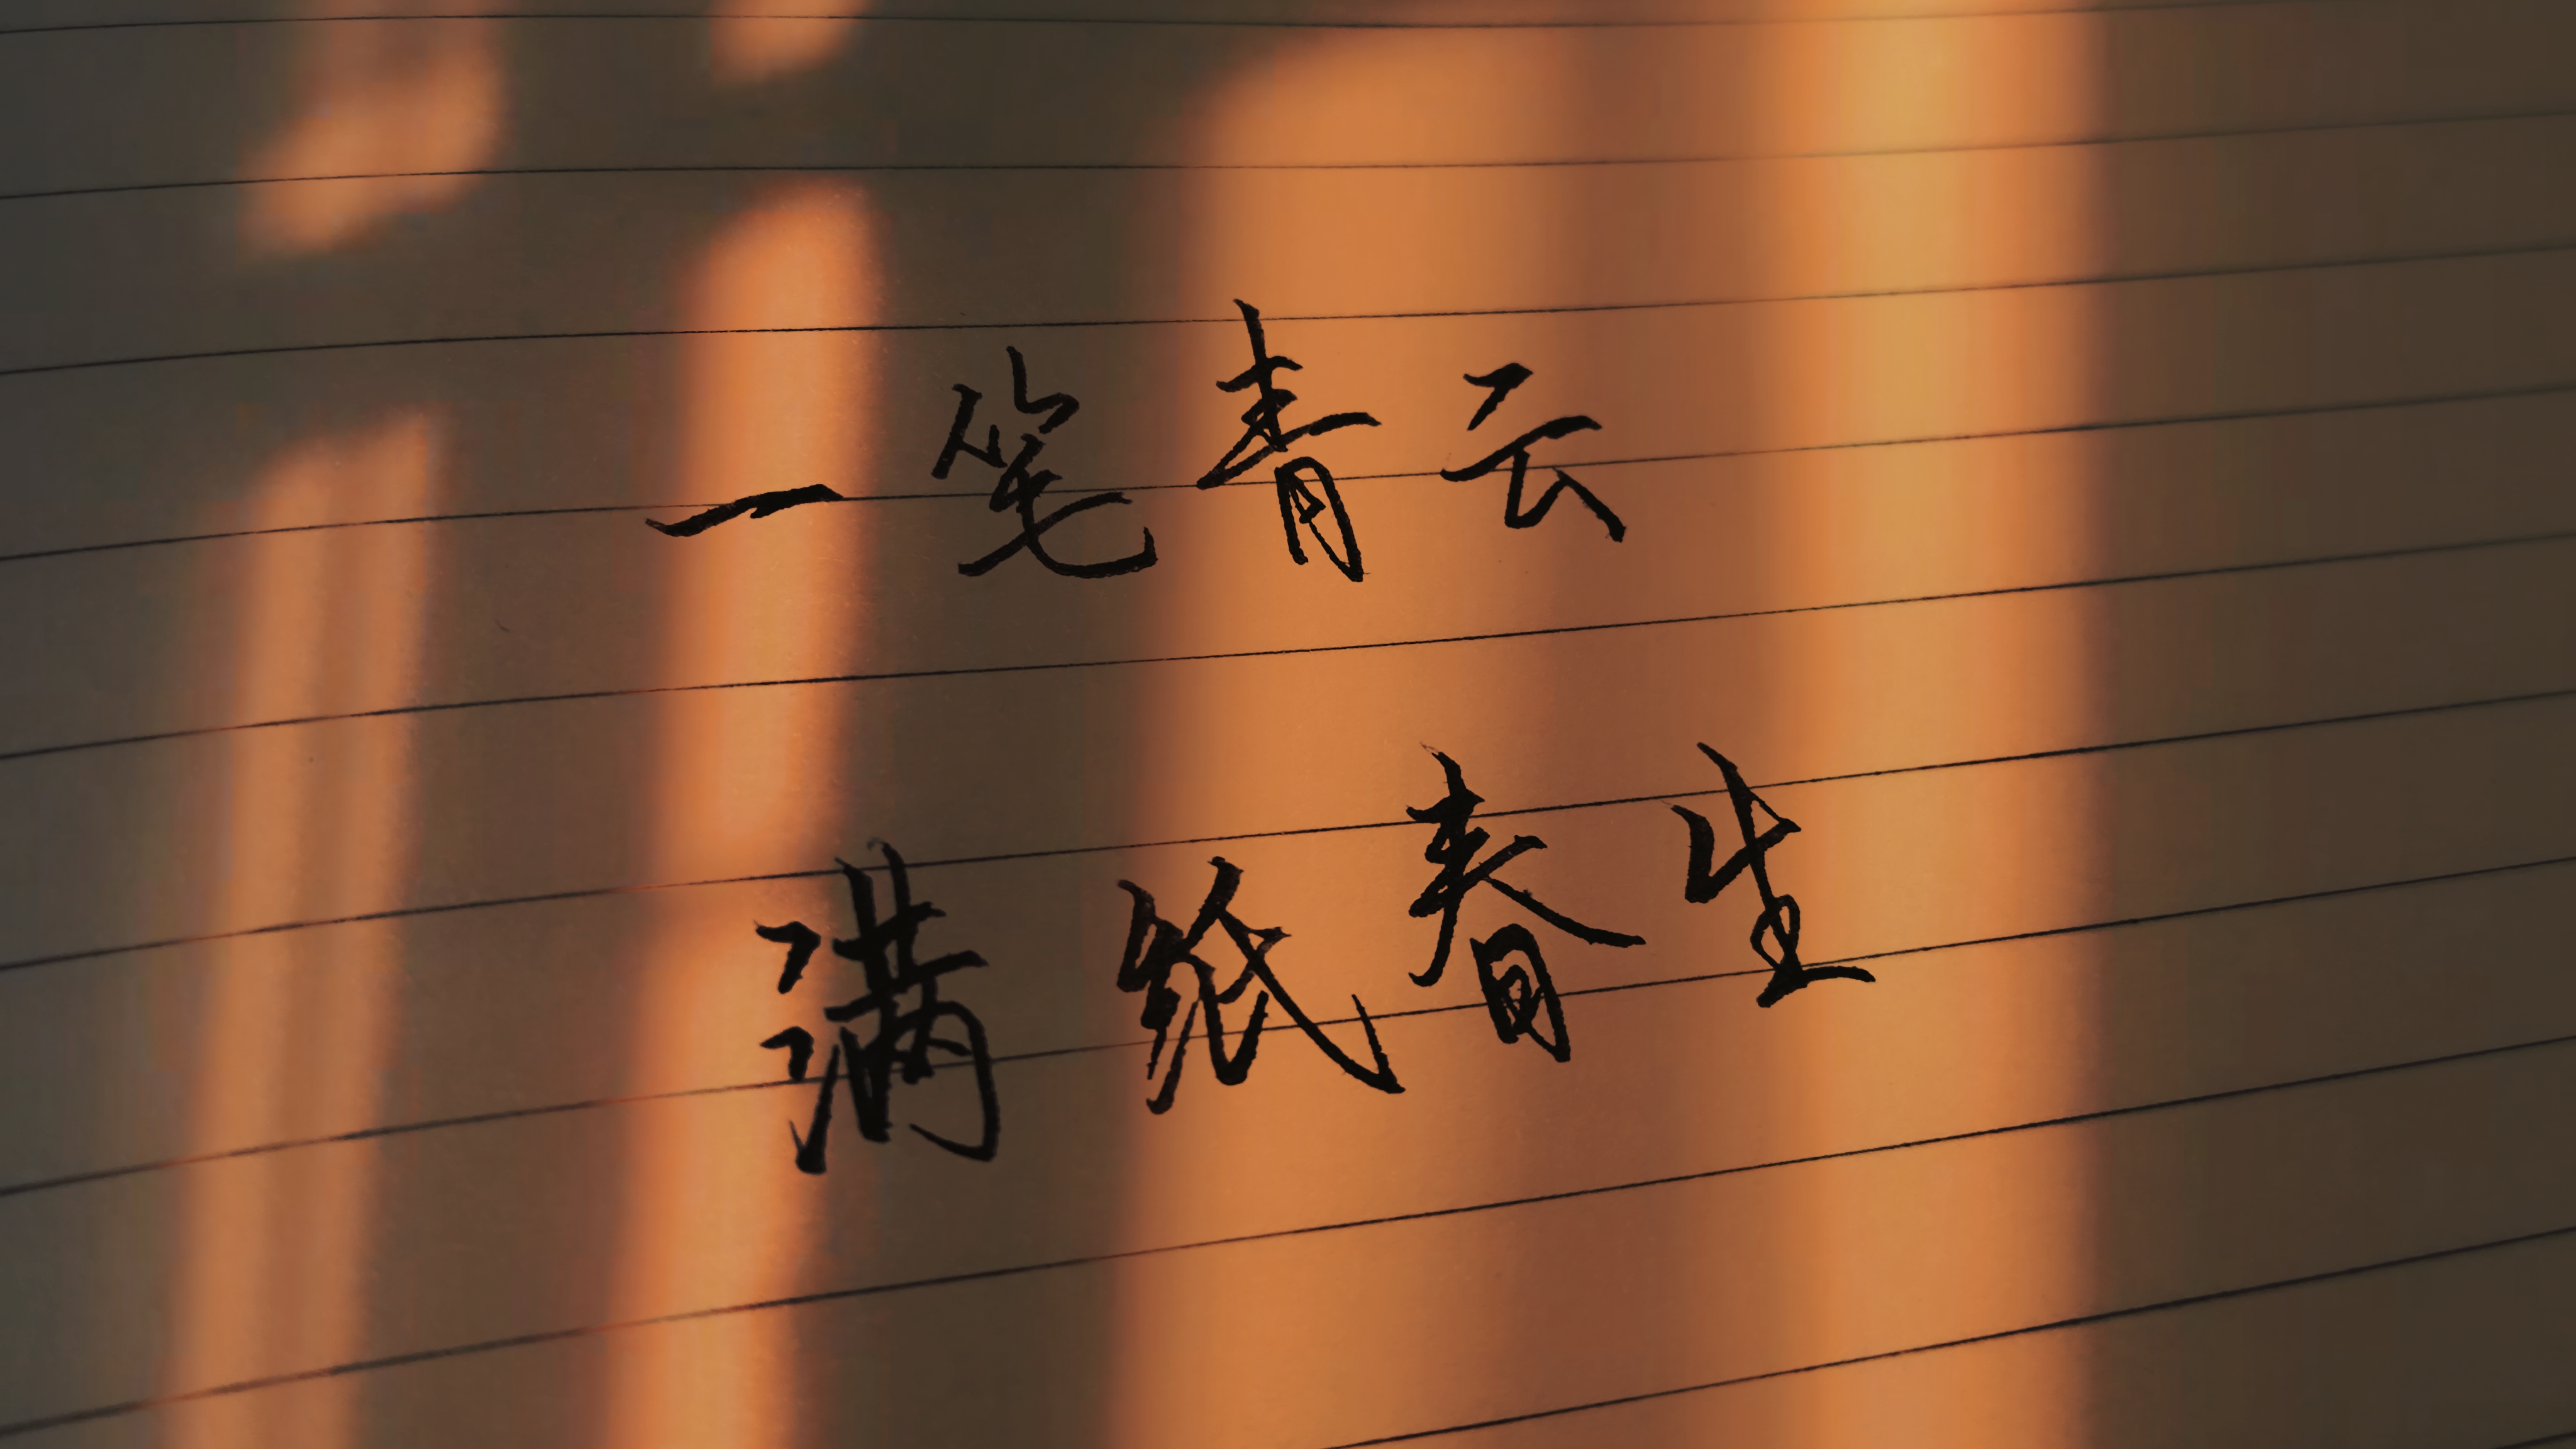 一笔青云
满纸春生